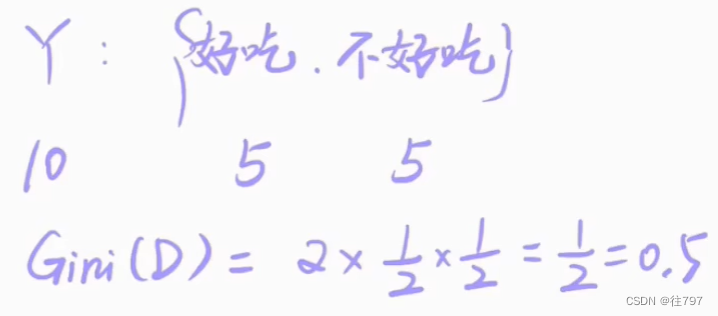 Y： {好吃．不好吃}
10 5 5
Gini(D) = 2 × 1/2 × 1/2 = 1/2 = 0.5
CSDN @往797